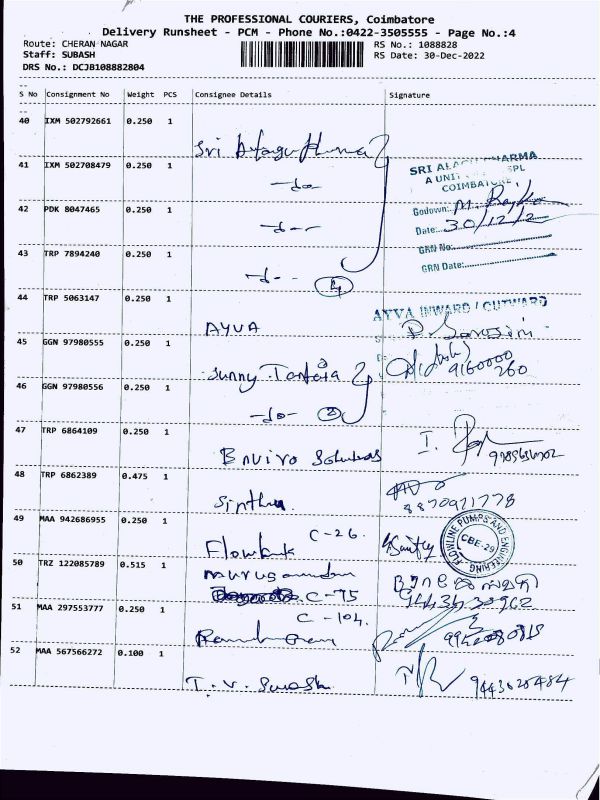 THE PROFESSIONAL COURIERS, Coimbatore
Delivery Runsheet - PCM - Phone No.:0422-3505555 - Page No.:4
Route: CHERAN NAGAR
Staff: SUBASH
DRS No.: DCJB108882804
RS No.: 1088828
RS Date: 30-Dec-2022
S No Consignment No Weight PCS Consignee Details Signature
40 IXM 502792661 0.250 1
Sri
41 IXM 502708479 0.250 1
-do-
SRI PHARMA
A UNIT SPL
COIMBATORE
42 PDK 8047465 0.250 1
-do-
Godown:
Date: 30/12/2
43 TRP 7894240 0.250 1
GRN No:
GRN Date:
-do- 4
44 TRP 5063147 0.250 1
AYVA
AYVA INWARD / OUTWARD
P. Sarojini
45 GGN 97980555 0.250 1
Sunny
9160000
260
46 GGN 97980556 0.250 1
-do- 2
47 TRP 6864109 0.250 1
Enviro Solutions
48 TRP 6862389 0.475 1
Sinthu
8870971778
49 MAA 942686955 0.250 1
C-26.
FLOWLINE PUMPS AND ENGINEERING
CBE-29
50 TRZ 122085789 0.515 1
Muruganandam
C-75
51 MAA 297553777 0.250 1
C-104.
52 MAA 567566272 0.100 1
T. V. Suresh